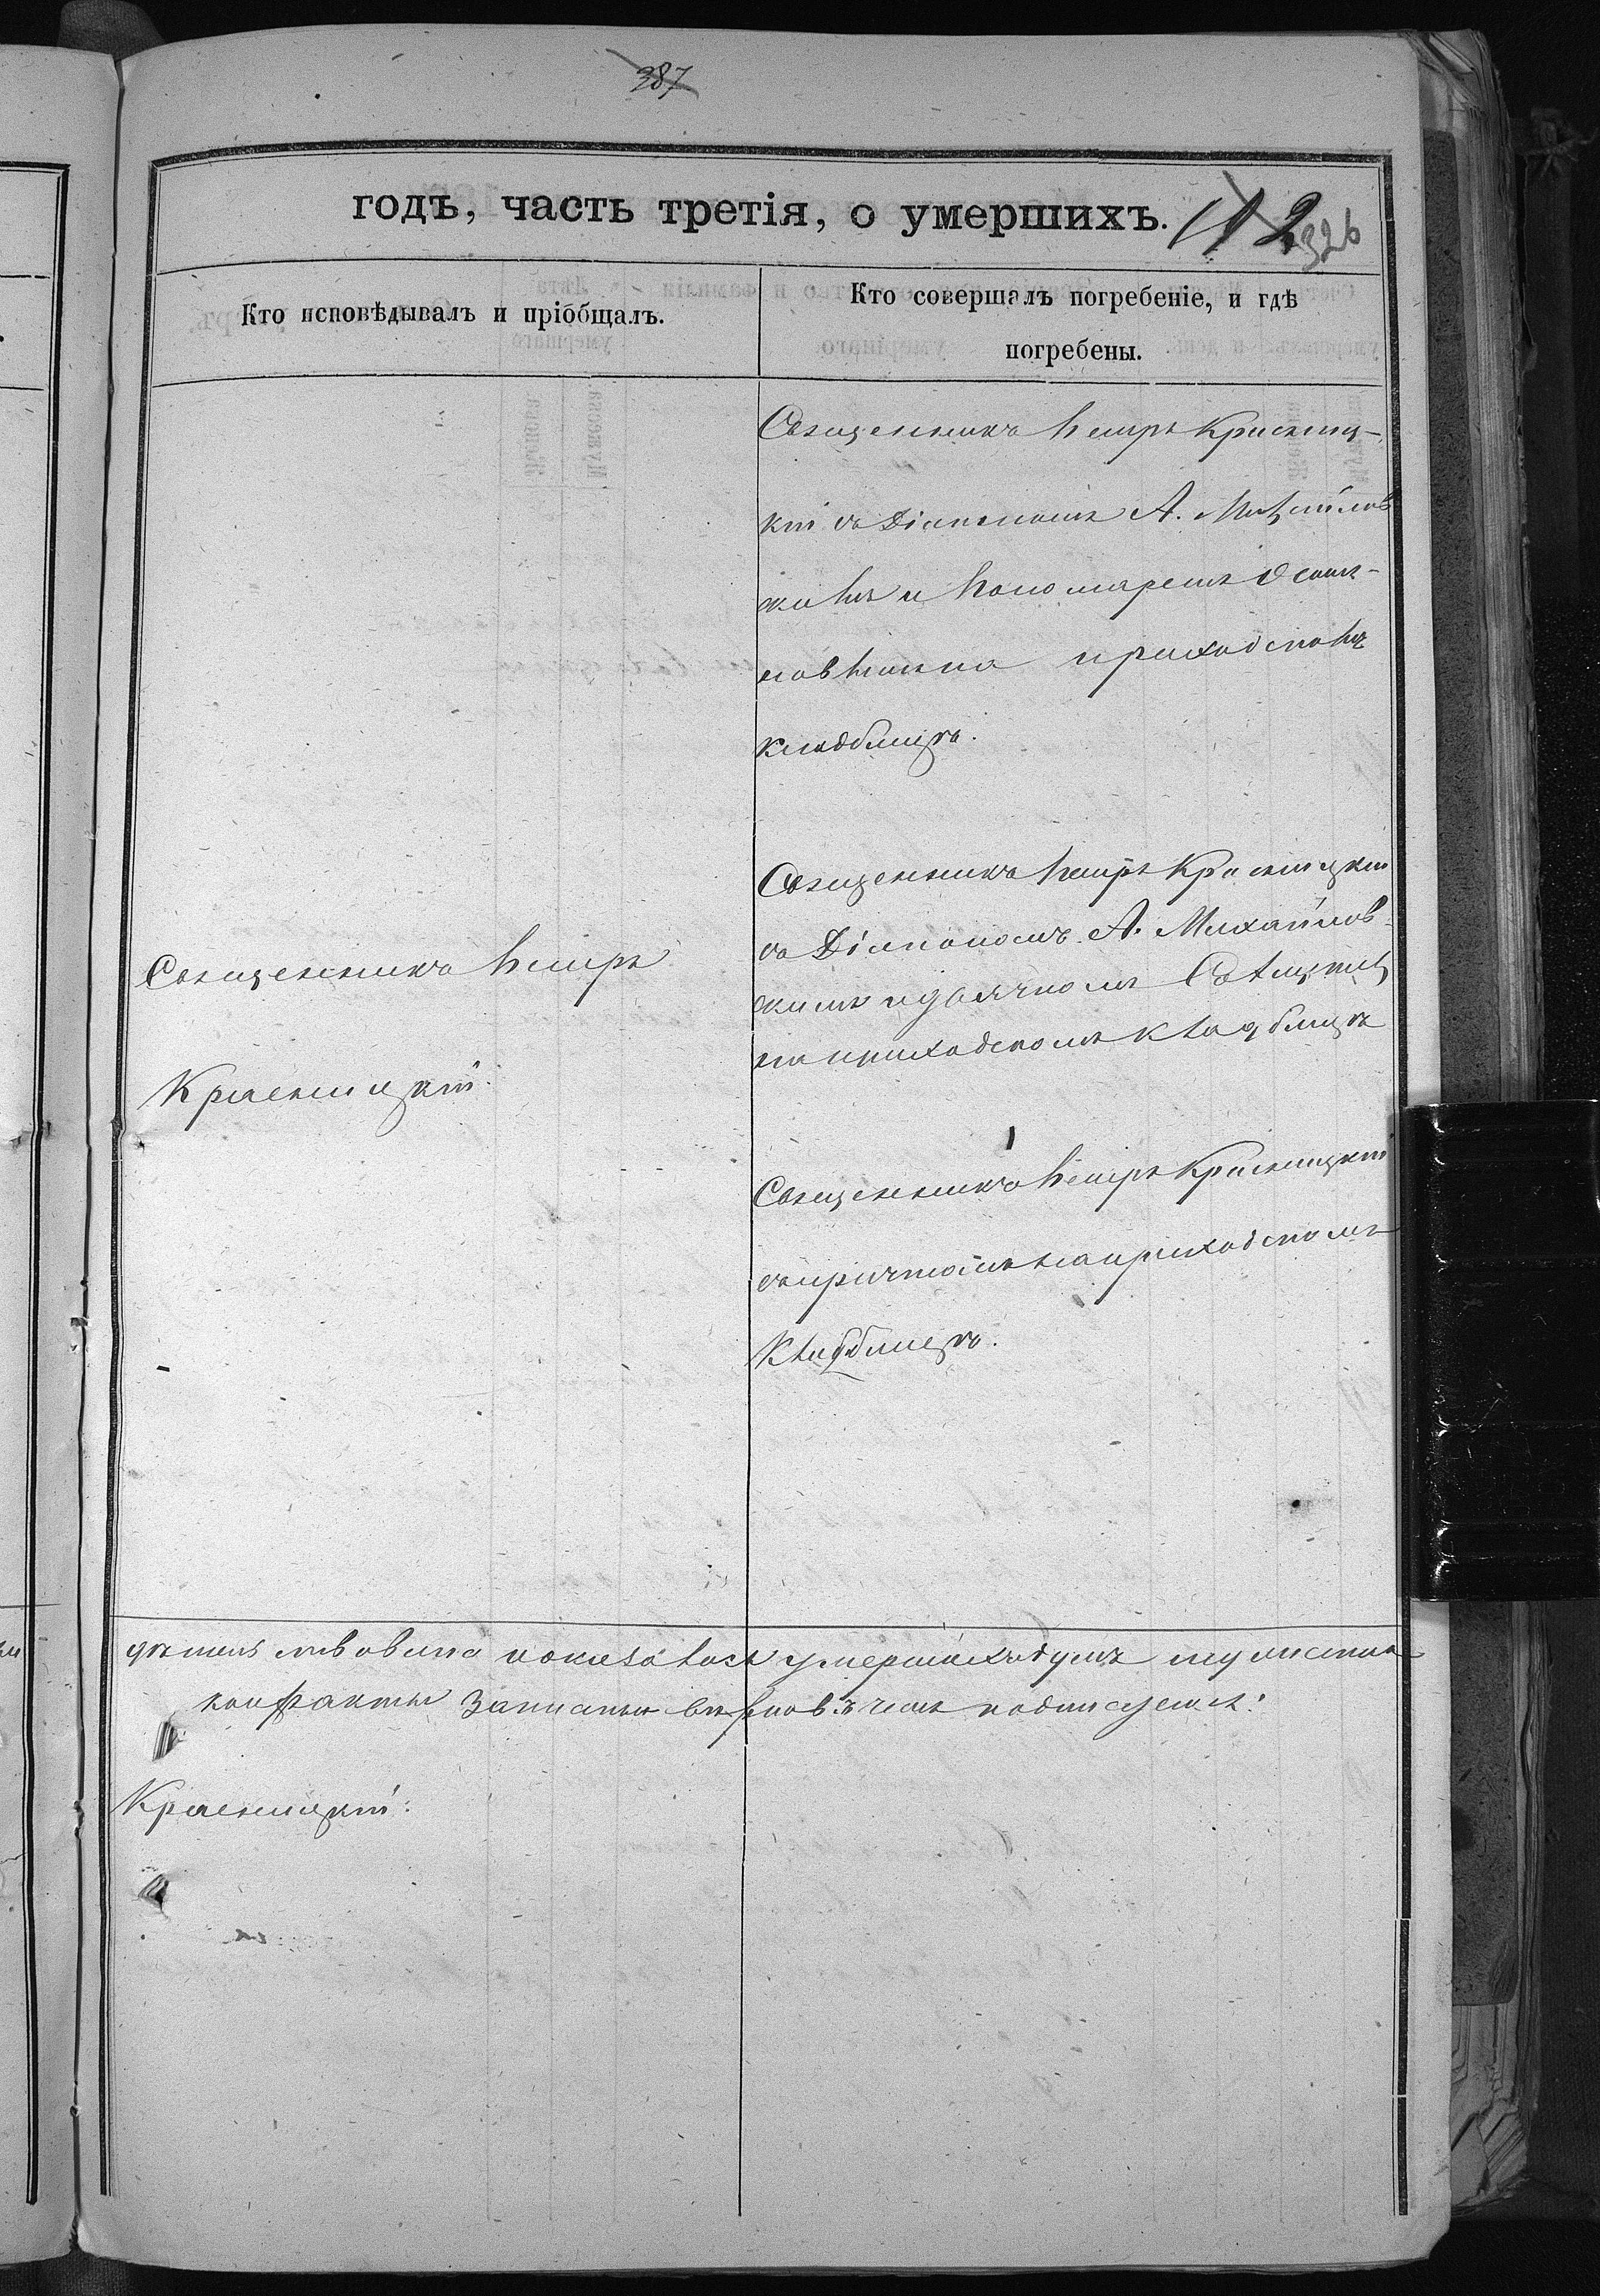 387
годъ, часть третія, о умершихъ.
112 326
Кто исповѣдывалъ и пріобщалъ.
Кто совершалъ погребеніе, и гдѣ
погребены.
Священникъ Петръ Красниц-
кій съ Діакономъ А. Михайлов
скимъ и Пономаремъ
на приходскомъ
кладбищѣ.
Священникъ Петръ Красницкій
съ Діакономъ А. Михайлов-
скимъ и дьячкомъ
на приходскомъ кладбищѣ
Священникъ Петръ
Красницкій.
Священникъ Петръ Красницкій
съ причтомъ на приходскомъ
кладбищѣ.
умершихъ
записаны въ чемъ подписуемся:
Красницкій: